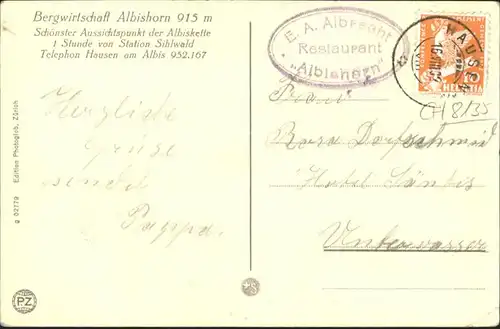 Bergwirtschaft Albishorn 915 m
Schönster Aussichtspunkt der Albiskette
1 Stunde von Station Sihlwald
Telephon Hausen am Albis 952.167
E. A. Albrecht
Restaurant
„Albishorn"
HAUSEN
HELVETIA
CH 8/35
Herzliche
Grüsse
sendet
Pappa.
Frau
Rosa Dorfschmid
Hotel Säntis
Unterwasser
g 02779 Edition Photoglob, Zürich
PZ